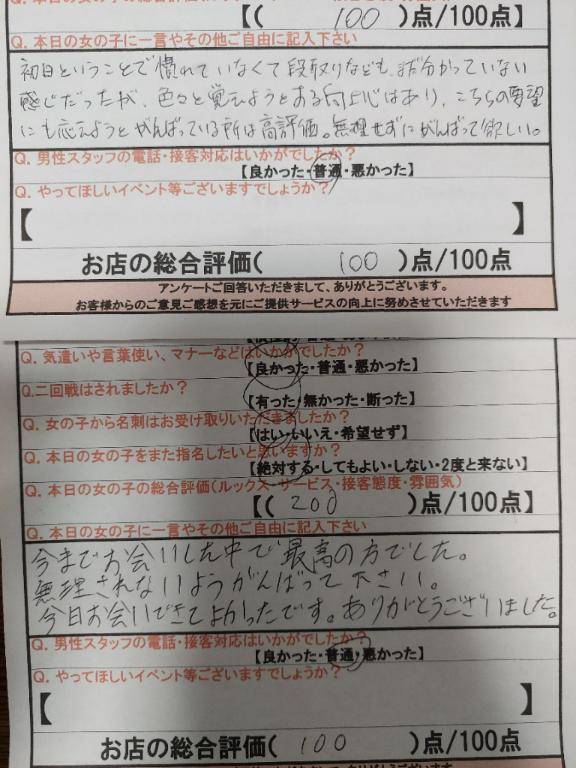 【( 100 )点/100点】
Q. 本日の女の子に一言やその他ご自由に記入下さい
初日ということで慣れていなくて段取りなども、まだ分かっていない
感じだったが、色々と覚えようとする向上心はあり、こちらの要望
にも応えようとがんばっている所は高評価。無理せずにがんばって欲しい。
Q. 男性スタッフの電話・接客対応はいかがでしたか?
【良かった・普通・悪かった】
Q. やってほしいイベント等ございますでしょうか?
【 】
お店の総合評価( 100 )点/100点
アンケートご回答いただきまして、ありがとうございます。
お客様からのご意見ご感想を元にご提供サービスの向上に努めさせていただきます
Q. 気遣いや言葉使い、マナーなどはいかがでしたか?
【良かった・普通・悪かった】
Q.二回戦はされましたか?
【有った・無かった・断った】
Q. 女の子から名刺はお受け取りいただきましたか?
【はい・いいえ・希望せず】
Q. 本日の女の子をまた指名したいと思いますか?
【絶対する・してもよい・しない・2度と来ない】
Q. 本日の女の子の総合評価(ルックス・サービス・接客態度・雰囲気)
【( 200 )点/100点】
Q. 本日の女の子に一言やその他ご自由に記入下さい
今までお会いした中で最高の方でした。
無理されないようがんばって下さい。
今日お会いできてよかったです。ありがとうございました。
Q. 男性スタッフの電話・接客対応はいかがでしたか?
【良かった・普通・悪かった】
Q. やってほしいイベント等ございますでしょうか?
【 】
お店の総合評価( 100 )点/100点